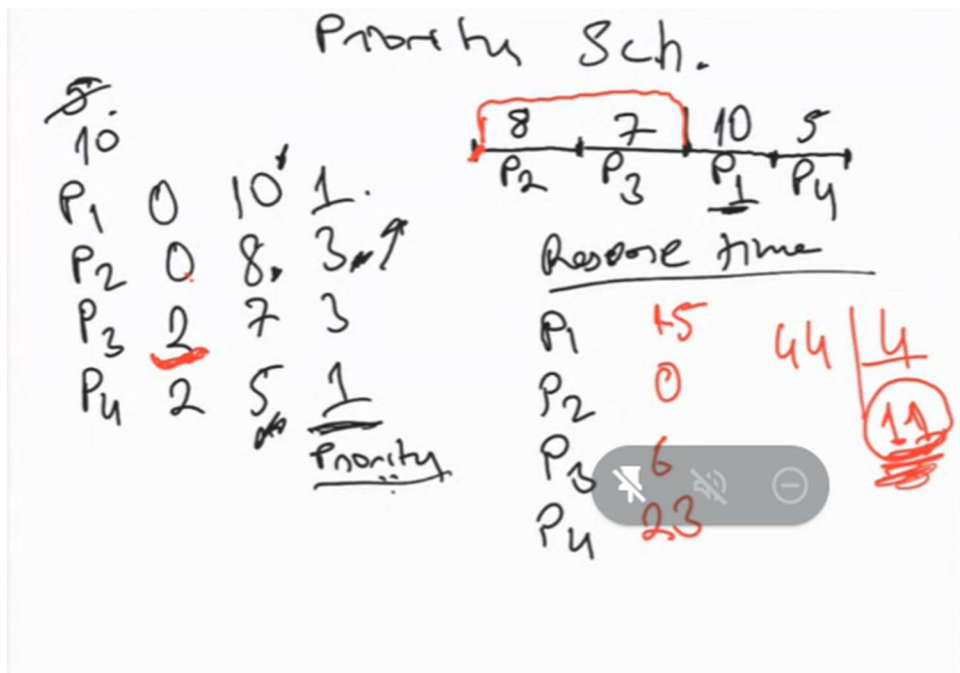 Priority Sch.
5
10
P1 0 10 1.
P2 0 8 3
P3 2 7 3
P4 2 5 1
Priority
8 7 10 5
P2 P3 P1 P4
Response time
P1 15
P2 0
P3 6
P4 23
44 4
11